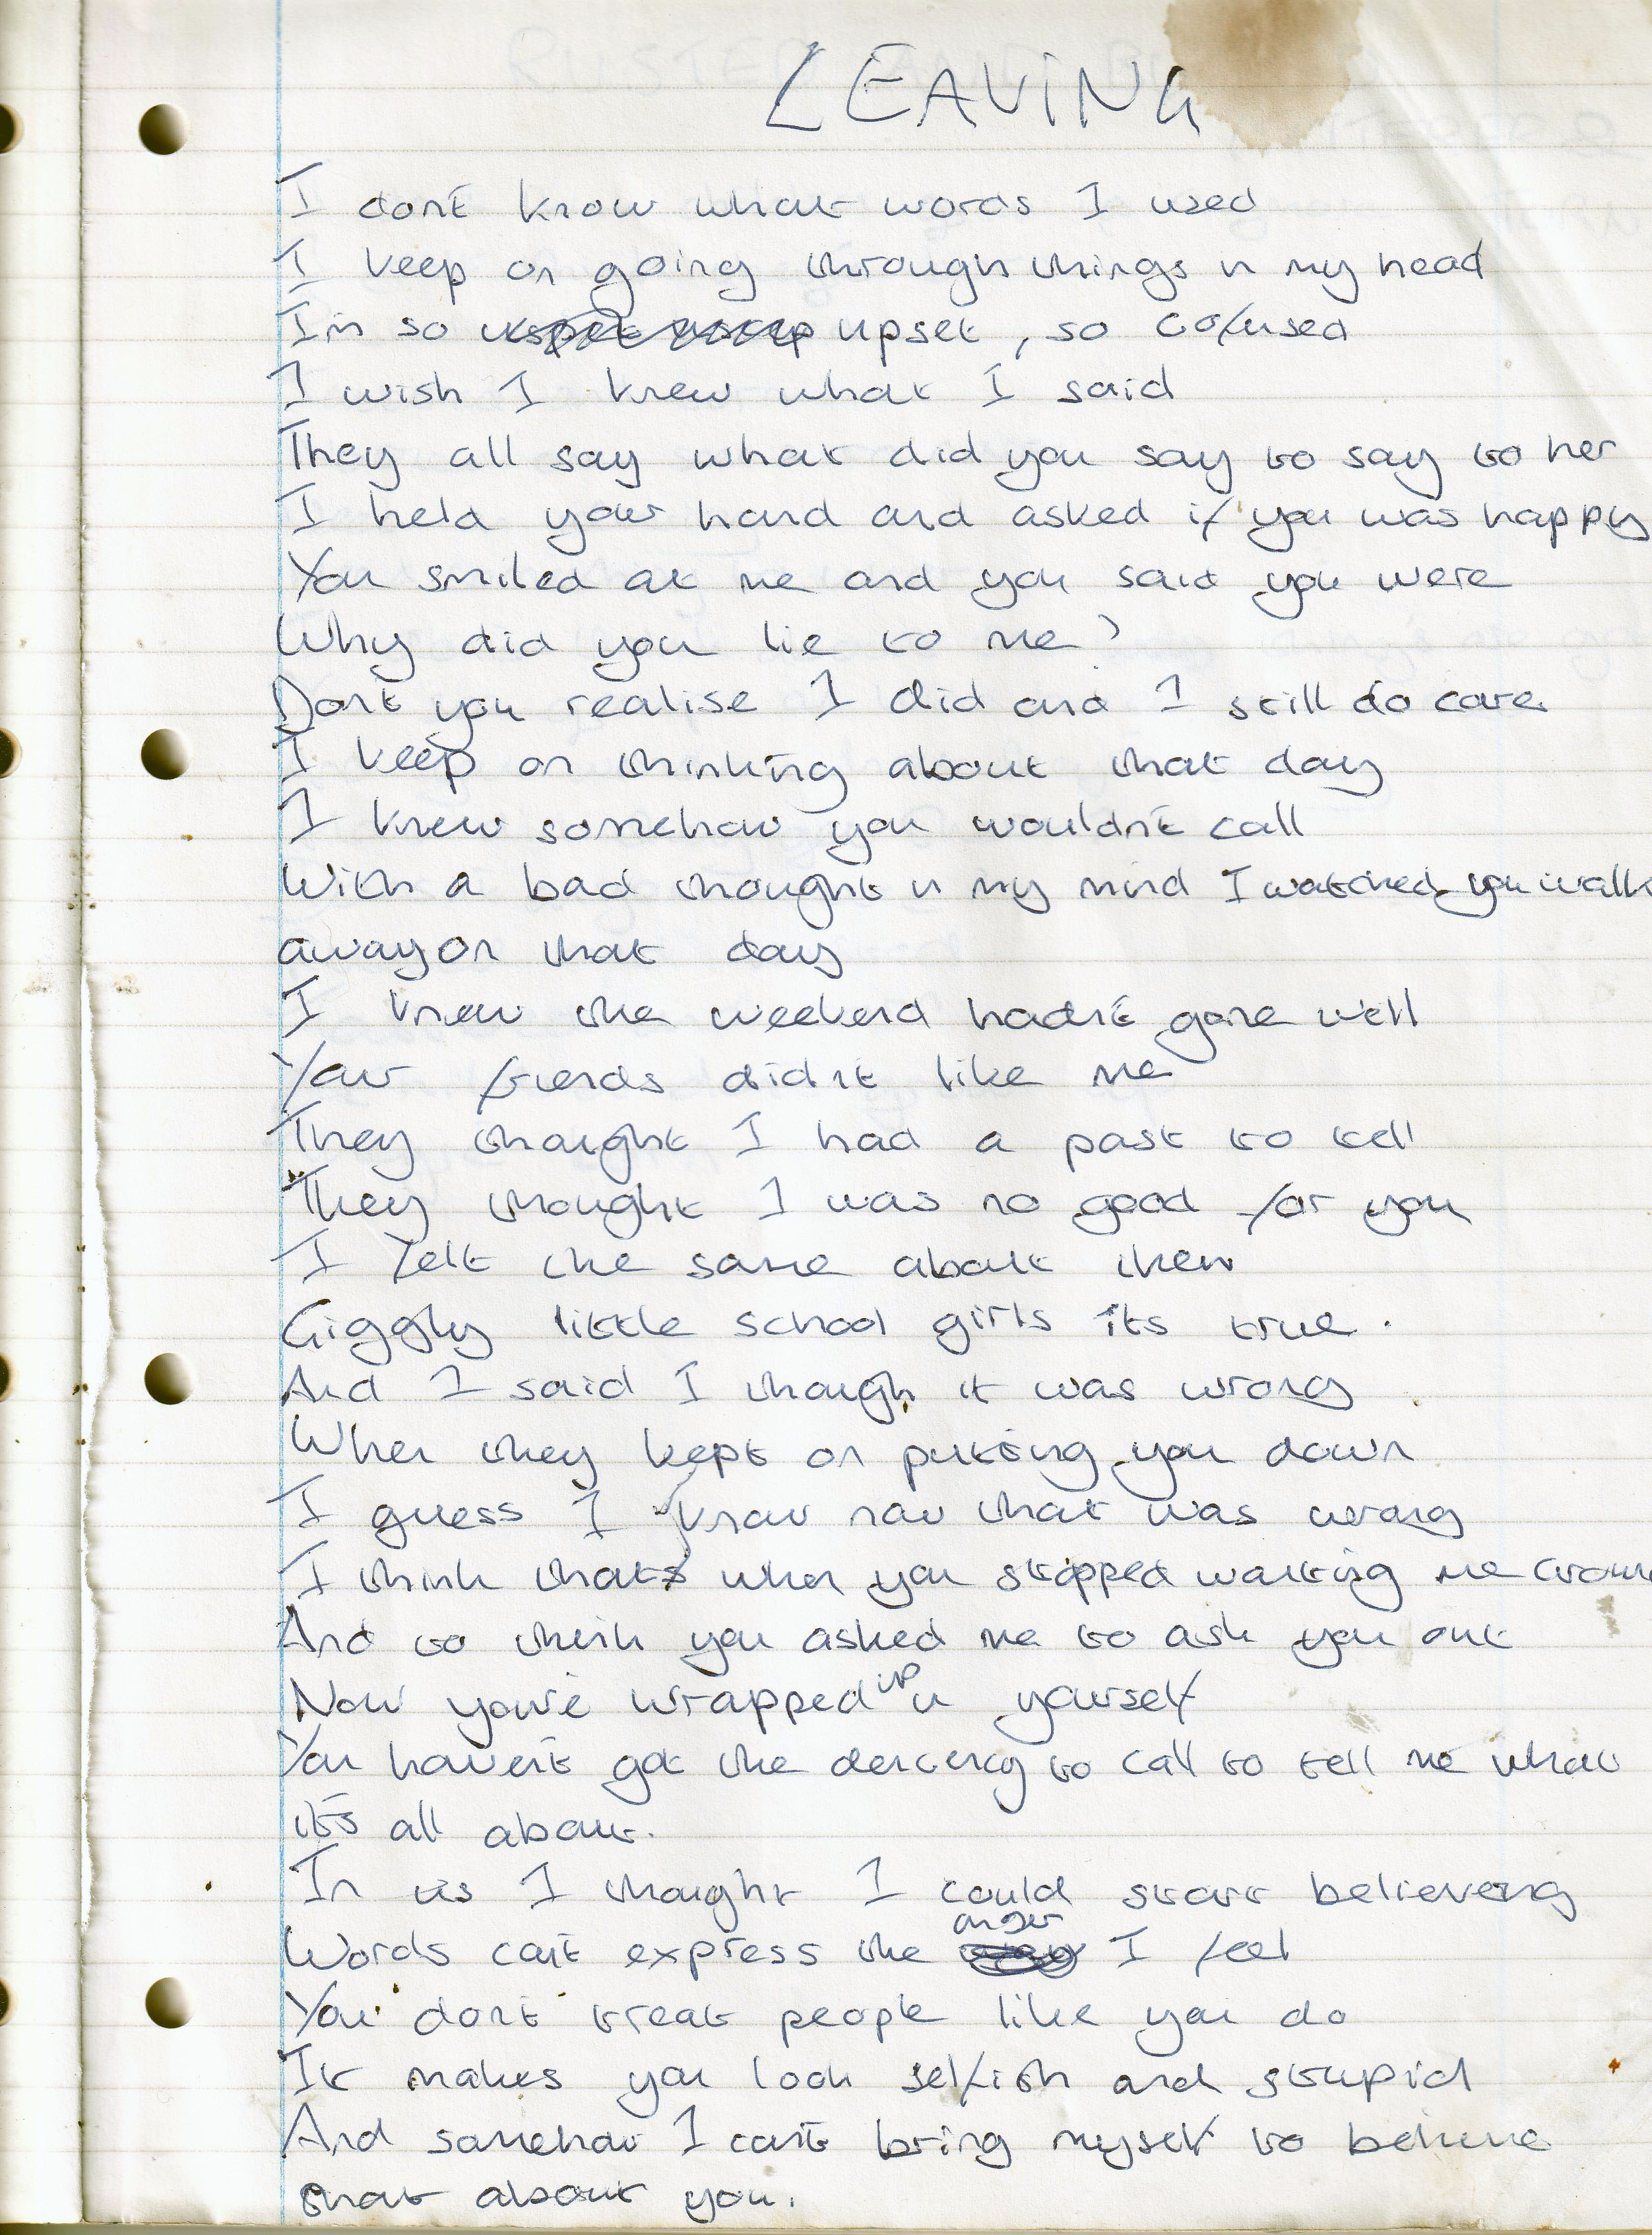 LEAVING
I don't know what words I used
I keep on going through things in my head
Im so upset, so cofused
I wish I knew what I said
They all say what did you say to say to her
I held your hand and asked if you was happy
You smiled at me and you said you were
Why did you lie to me?
Don't you realise I did and I still do care.
I keep on thinking about that day
I knew somehow you wouldn't call
With a bad thought in my mind I watched you walk
away on that day
I knew the weekend hadn't gone well
Your friends didn't like me
They thought I had a past to tell
They thought I was no good for you
I felt the same about them
Giggly little school girls its true.
And I said I though it was wrong
When they kept on putting you down
I guess I know now that was wrong
I think thats when you stopped wanting me
And to think you asked me to ask you out
Now you're wrapped up in yourself
You haven't got the dencency to call to tell me what
it's all about.
In us I thought I could start believeing
Words can't express the anger I feel
You don't treat people like you do
It makes you look selfish and stupid
And somehow I can't bring myself to believe
that about you.